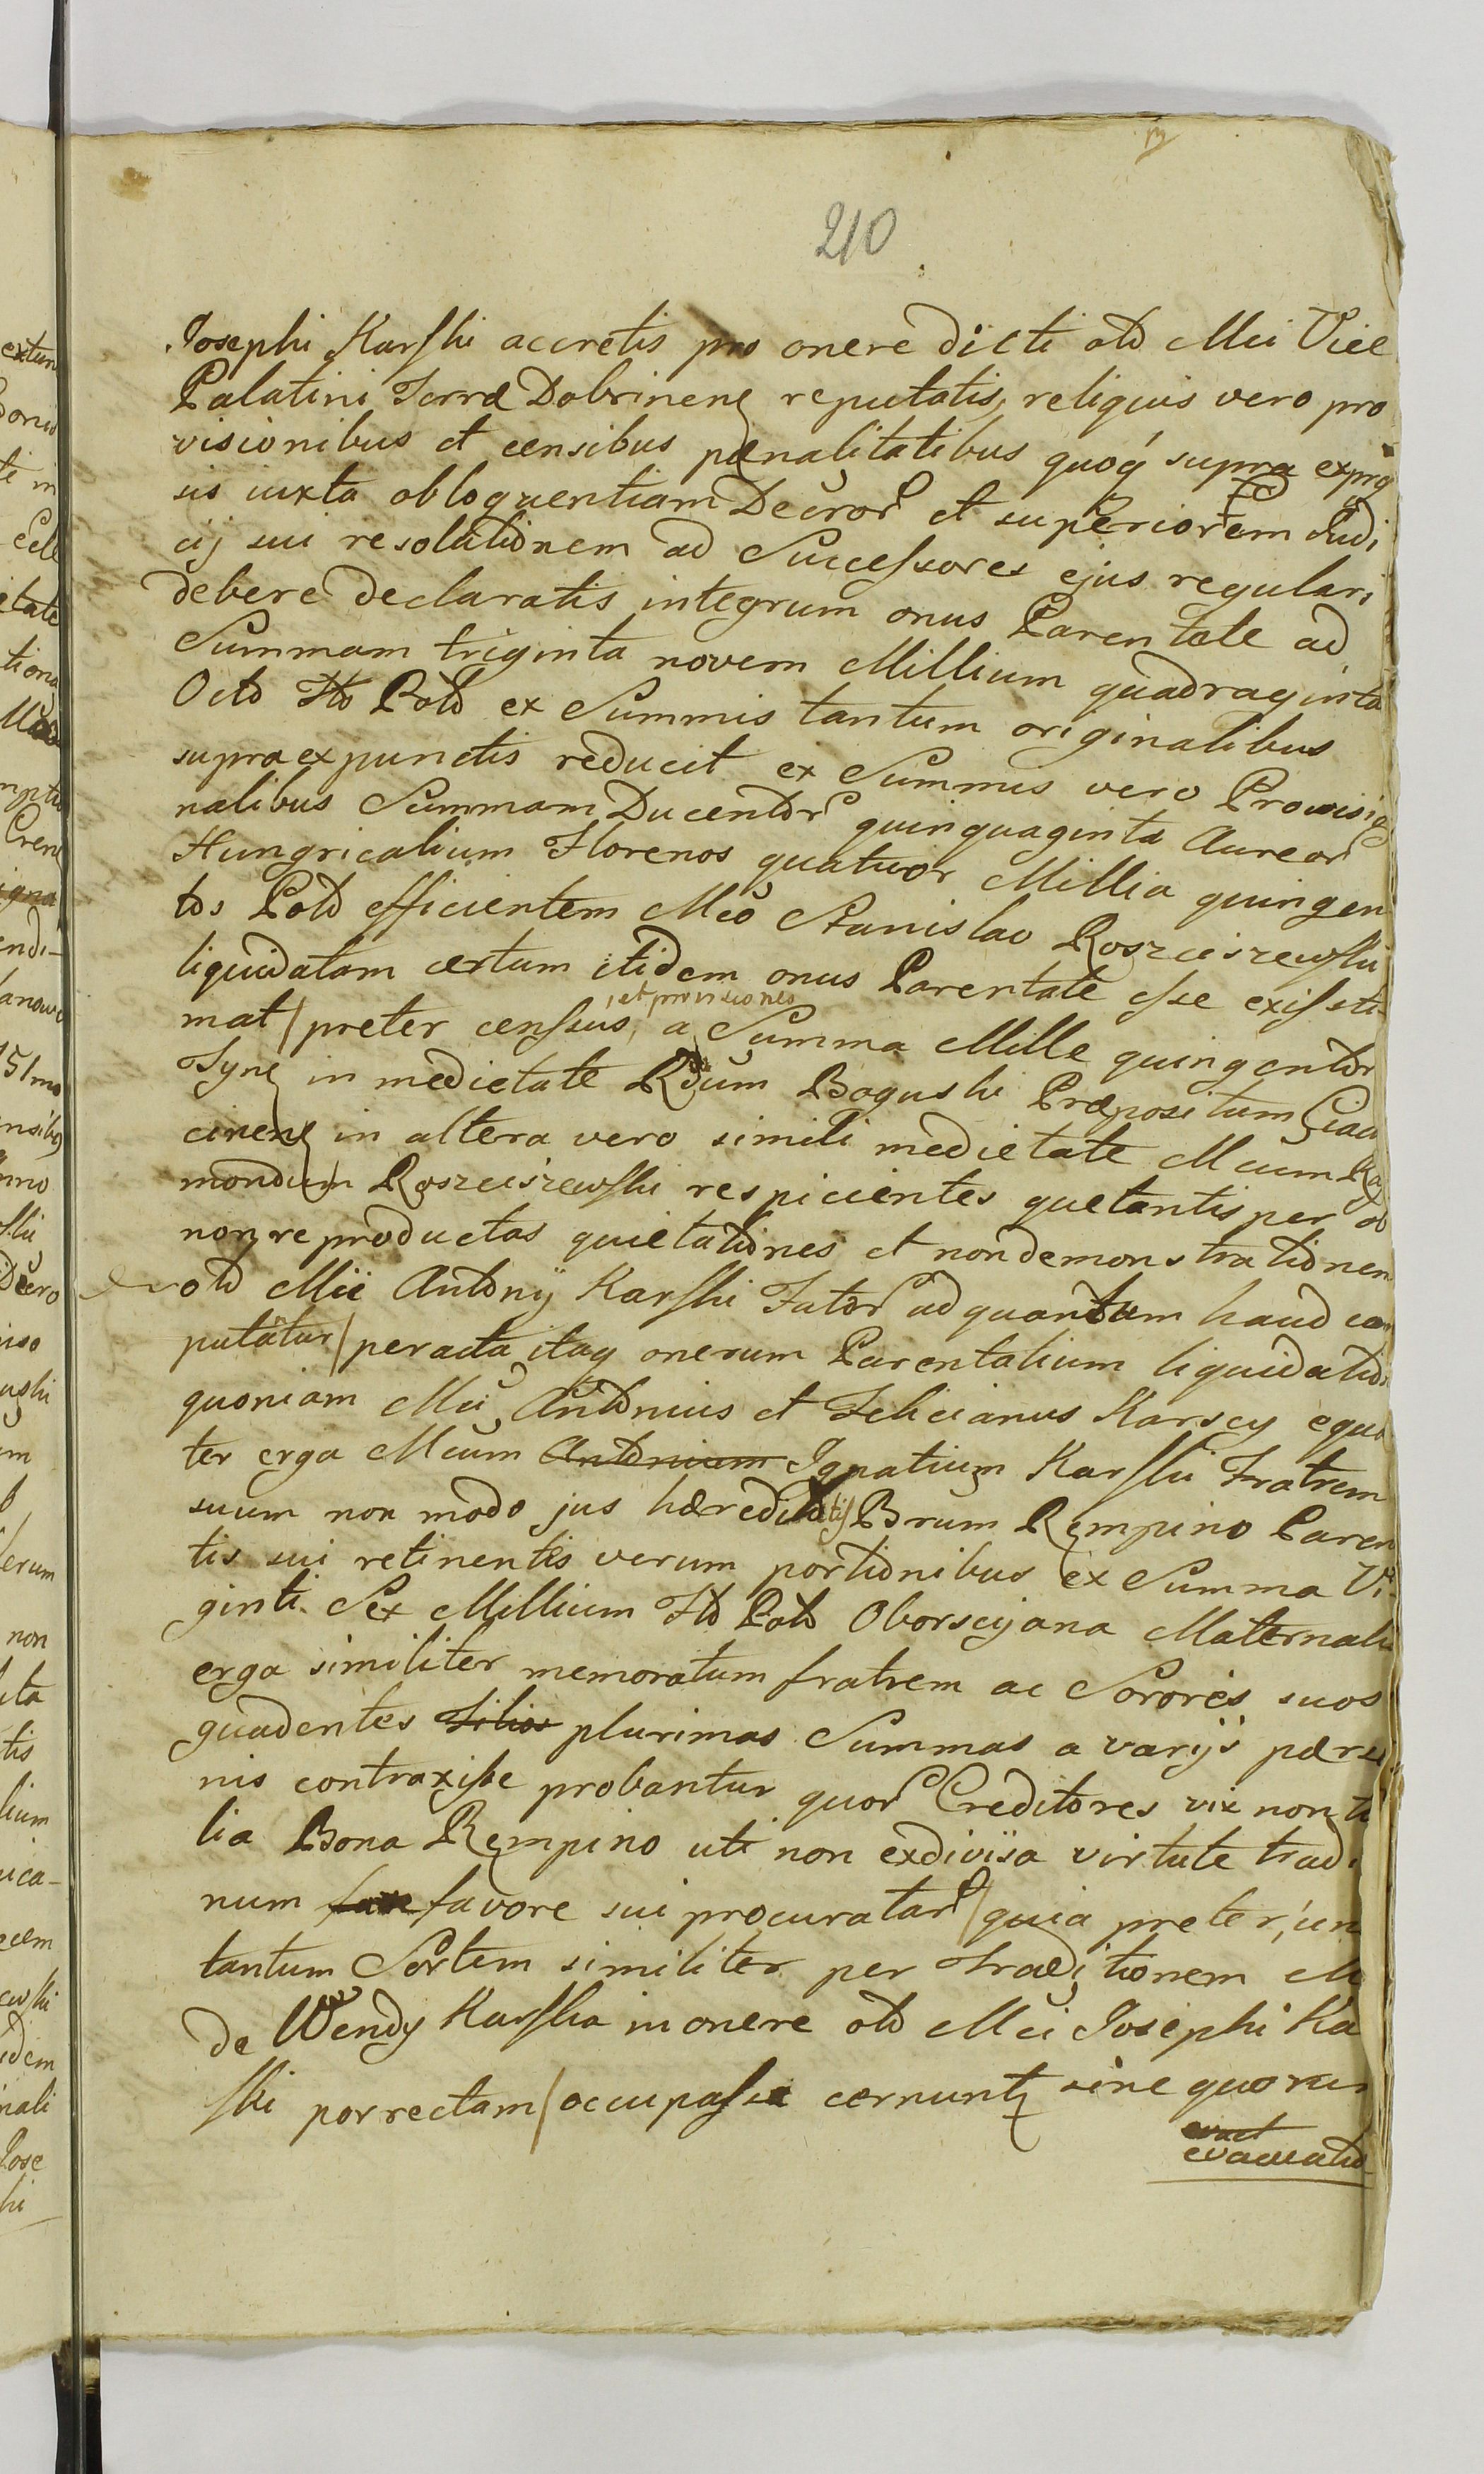 210
Josephi Karski accretis pro onere dicti olo Mci Vice
Palatini Terræ Dobrinens reputatis, religuis vero pro
visionibus et censibus pænalitatibus quoq supra expres
sis iuxta obloquentiam Decror et superiorem Judi
cij sui resolutionem ad Successores ejus regulari
debere declaratis integrum onus Parentale ad
Summam triginta novem Millium quadraginta
Octo Flo Polo ex Summis tantum originalibus
supraexpunctis reducit ex Summis vero Provisio
nalibus Summam Ducentor quinquaginta Aureor
Hungricalium Florenos quatuor Millia quingen
tos Polo efficientem Mco Stanislao Roszciszewski
liquidatam certum itidem onus Parentale esse existi
mat / preter censsus, et provisiones a Summa Mille quingentor
Tynf in medietate Rdum Boguski Præpositum
cinens in altera vero simili medietate Mcum Ray
mondum Roszciszewski respicientes quetantisper ob
non reproductas quietationes et nondemonstrationem
olo Mci Antonij Karski Futor adquantum haud com
putantur / peracta itaq onerum Parentalium liquidatio
quoniam Mci Antonius et Felicianus Karscy equa
ter erga Mcum Antonium Ignatium Karski Fratrem
suum non modo jus hæreditatis Brum Rempino Paren
tis sui retinentis verum portionibus ex Summa Vi
ginti Sex Millium Flo Polo Oborscijana Maternali
erga similiter memoratum fratrem ac Sorores suos
guadentes Filios plurimas Summas a varijs perso
nis contraxisse probantur quor Creditores vix non to
lia Bona Rempino uti non exdivisa virtute tradi
num fave favore sui procuratar / quia preter un
tantum Sortem similiter per Traditionem M
de Wendy Karska in onere olo Mci Josephi Kar
ski porrectam / occupasse cernunt sine quorum
evact
evacuatio